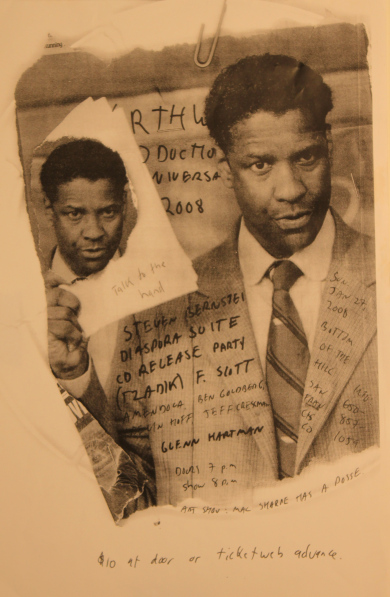 RTHW
DUCTIO
NIVERSA
2008
Talk to the
hand
STEVEN BERNSTEI
DIASPORA SUITE
CD RELEASE PARTY
(TZADIK) F. SCOTT
AMENDOLA BEN GOLDBERG,
JEFF CRESSMAN
GLENN HARTMAN
DOORS 7 pm
Show 8 pm
SUN
JAN 27
2008
BOTTOM
OF THE
HILL
SAN
ART SHOW: MAC SHARPE HAS A POSSE
$10 at door or ticketweb advance.